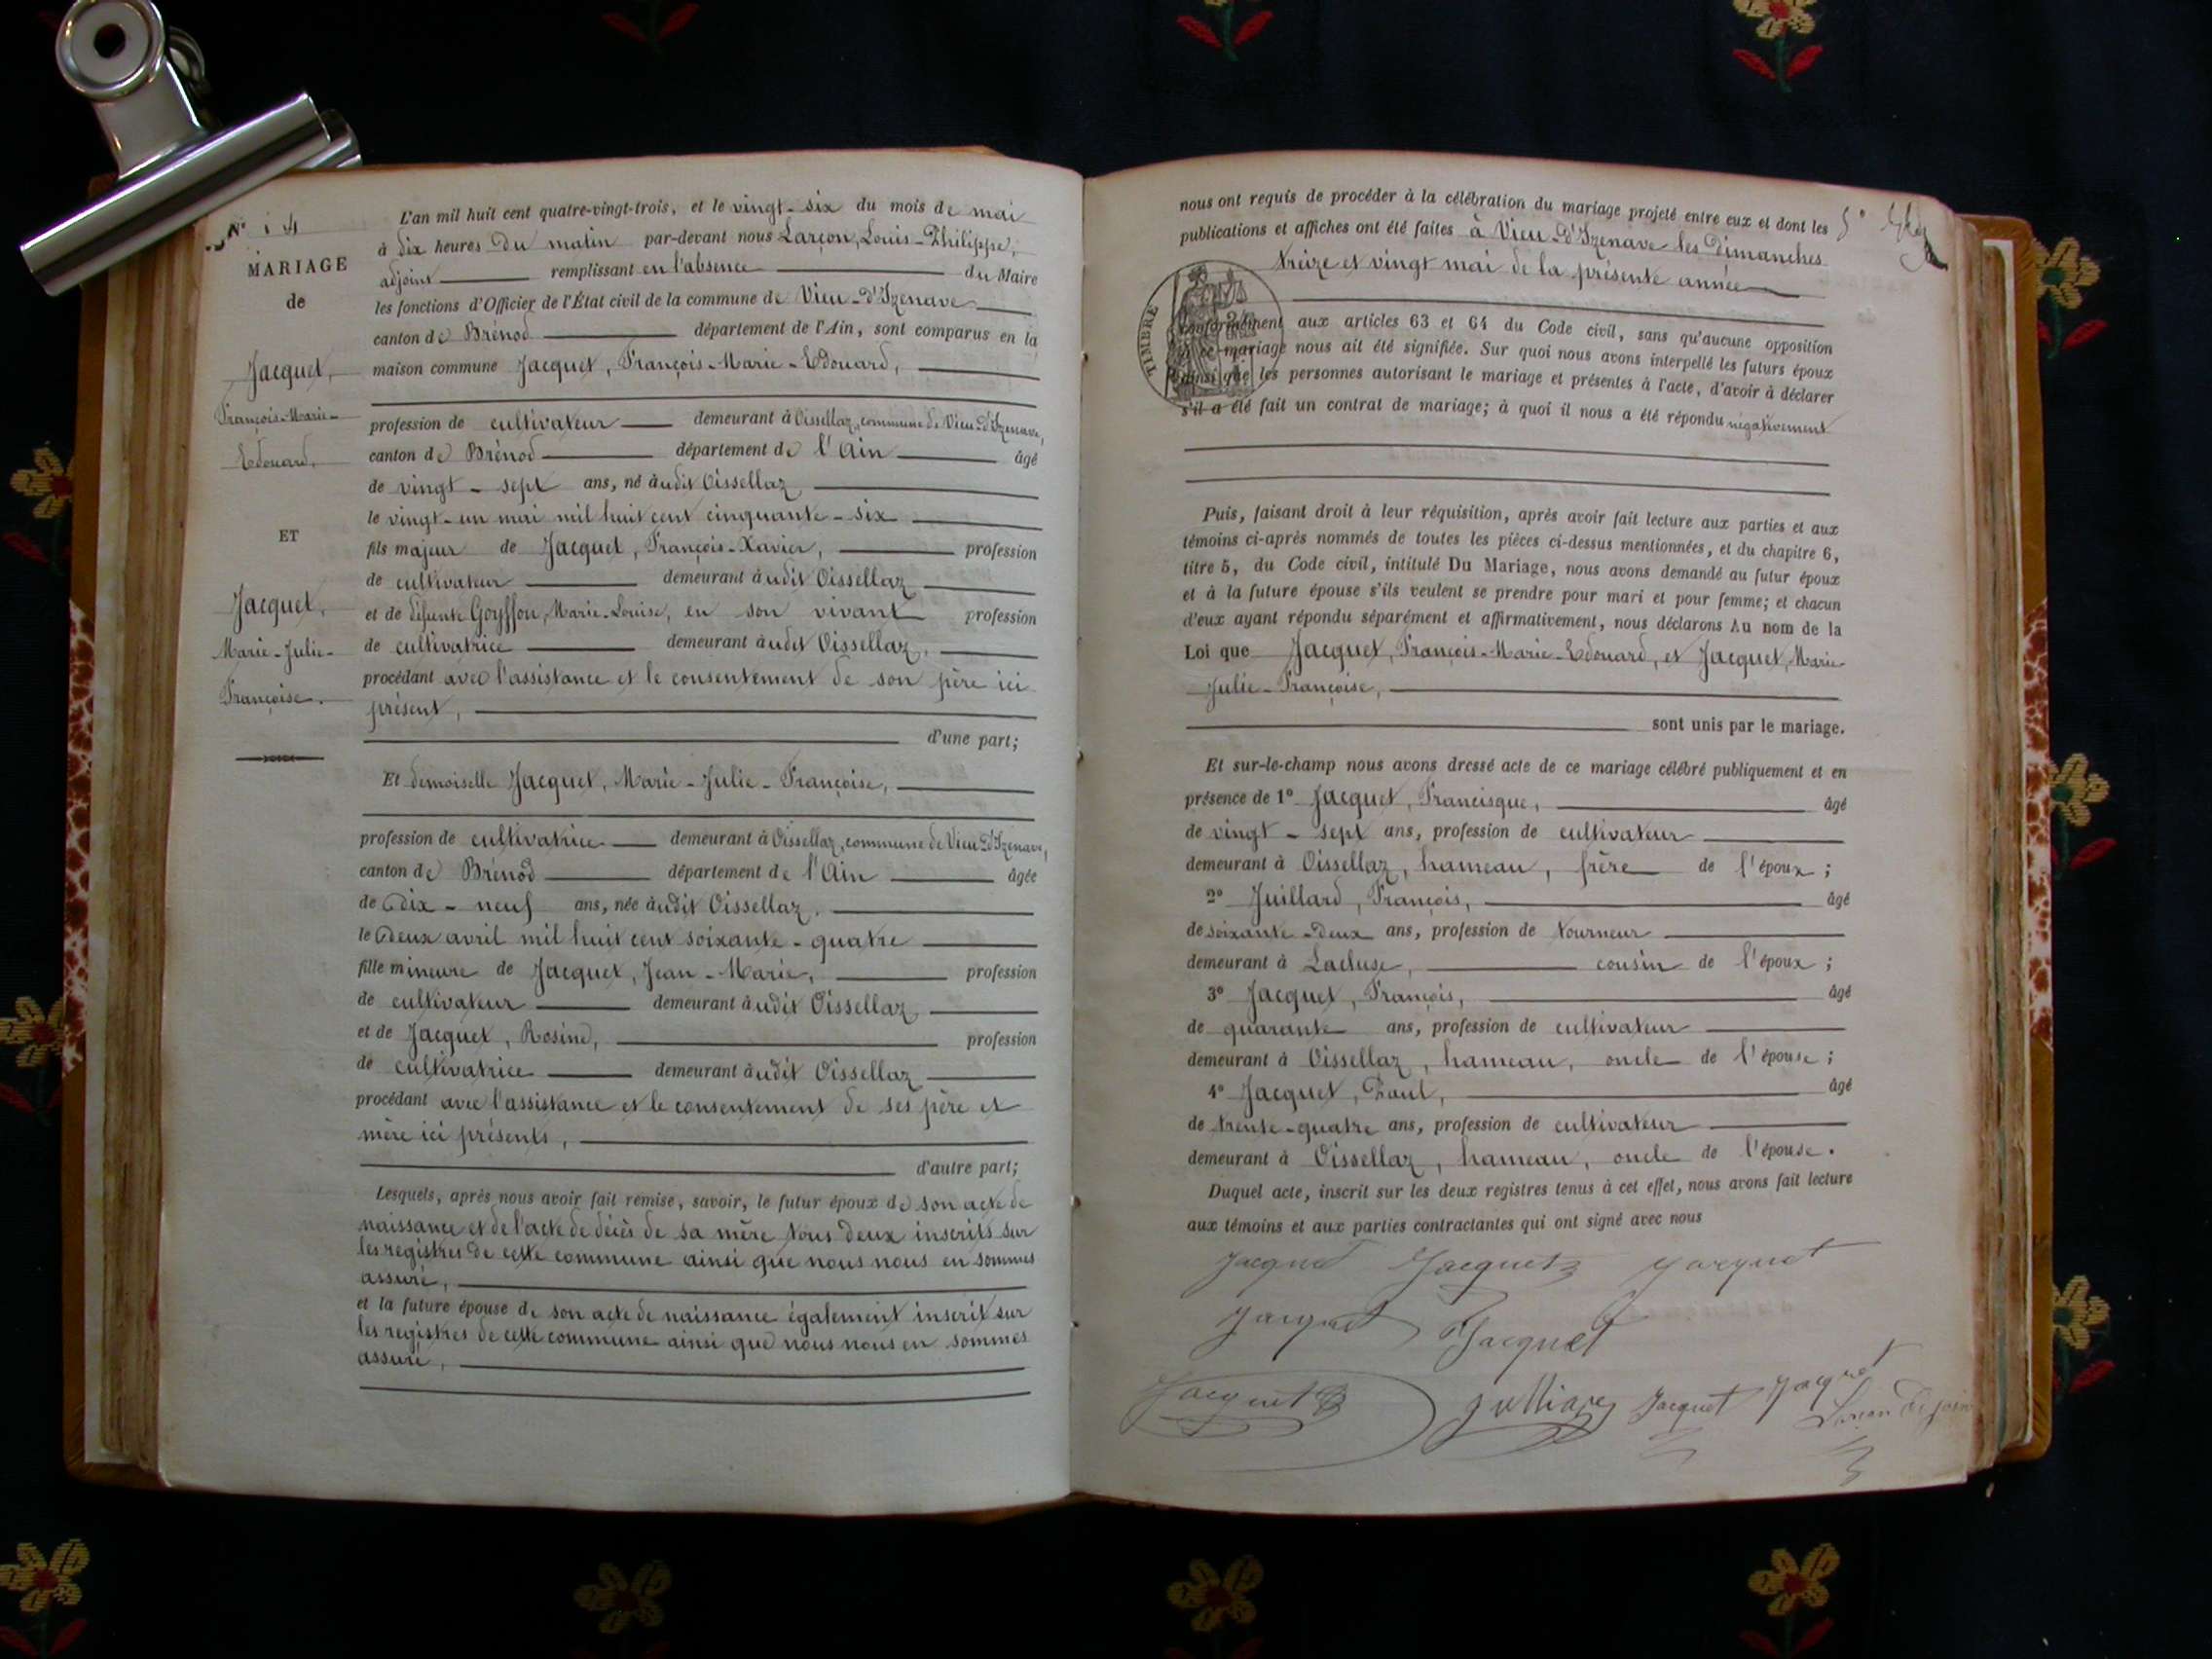 N° 4
MARIAGE
de
Jacquet,
François-Marie-
Edouard,
ET
Jacquet,
Marie-Julie-
Françoise.
L'an mil huit cent quatre-vingt-trois, et le vingt-six du mois de mai
à dix heures du matin par-devant nous Larçon, Louis-Philippe,
adjoint remplissant en l'absence du Maire
les fonctions d'Officier de l'État civil de la commune de Vieu-d'Izenave
canton de Brénod département de l'Ain, sont comparus en la
maison commune Jacquet, François-Marie-Edouard,
profession de cultivateur demeurant à Oissellaz, commune de Vieu-d'Izenave,
canton de Brénod département de l'Ain âgé
de vingt-sept ans, né audit Oissellaz
le vingt-un mai mil huit cent cinquante-six
fils majeur de Jacquet, François-Xavier, profession
de cultivateur demeurant audit Oissellaz
et de défunte Goyffon, Marie-Louise, en son vivant profession
de cultivatrice demeurant audit Oissellaz,
procédant avec l'assistance et le consentement de son père ici
présent,
d'une part;
Et demoiselle Jacquet, Marie-Julie-Françoise,
profession de cultivatrice demeurant à Oissellaz, commune de Vieu-d'Izenave,
canton de Brénod département de l'Ain âgée
de dix-neuf ans, née audit Oissellaz,
le deux avril mil huit cent soixante-quatre
fille mineure de Jacquet, Jean-Marie, profession
de cultivateur demeurant audit Oissellaz
et de Jacquet, Rosine, profession
de cultivatrice demeurant audit Oissellaz
procédant avec l'assistance et le consentement de ses père et
mère ici présents,
d'autre part;
Lesquels, après nous avoir fait remise, savoir, le futur époux de son acte de
naissance et de l'acte de décès de sa mère tous deux inscrits sur
les registres de cette commune ainsi que nous nous en sommes
assuré,
et la future épouse de son acte de naissance également inscrit sur
les registres de cette commune ainsi que nous nous en sommes
assuré,
nous ont requis de procéder à la célébration du mariage projeté entre eux et dont les
publications et affiches ont été faites à Vieu-d'Izenave les dimanches
treize et vingt mai de la présente année
TIMBRE
conformément aux articles 63 et 64 du Code civil, sans qu'aucune opposition
à ce mariage nous ait été signifiée. Sur quoi nous avons interpellé les futurs époux
ainsi que les personnes autorisant le mariage et présentes à l'acte, d'avoir à déclarer
s'il a été fait un contrat de mariage; à quoi il nous a été répondu négativement
Puis, faisant droit à leur réquisition, après avoir fait lecture aux parties et aux
témoins ci-après nommés de toutes les pièces ci-dessus mentionnées, et du chapitre 6,
titre 5, du Code civil, intitulé Du Mariage, nous avons demandé au futur époux
et à la future épouse s'ils veulent se prendre pour mari et pour femme; et chacun
d'eux ayant répondu séparément et affirmativement, nous déclarons Au nom de la
Loi que Jacquet, François-Marie-Edouard, et Jacquet, Marie-
Julie-Françoise,
sont unis par le mariage.
Et sur-le-champ nous avons dressé acte de ce mariage célébré publiquement et en
présence de 1° Jacquet, Francisque, âgé
de vingt-sept ans, profession de cultivateur
demeurant à Oissellaz, hameau, frère de l'époux;
2° Juillard, François, âgé
de soixante-deux ans, profession de tourneur
demeurant à Lacluse, cousin de l'époux;
3° Jacquet, François, âgé
de quarante ans, profession de cultivateur
demeurant à Oissellaz, hameau, oncle de l'épouse;
4° Jacquet, Paul, âgé
de trente-quatre ans, profession de cultivateur
demeurant à Oissellaz, hameau, oncle de l'épouse.
Duquel acte, inscrit sur les deux registres tenus à cet effet, nous avons fait lecture
aux témoins et aux parties contractantes qui ont signé avec nous
Jacquet Jacquet Jacquet
Jacquet Jacquet
Jacquet Julliard Jacquet Jacquet